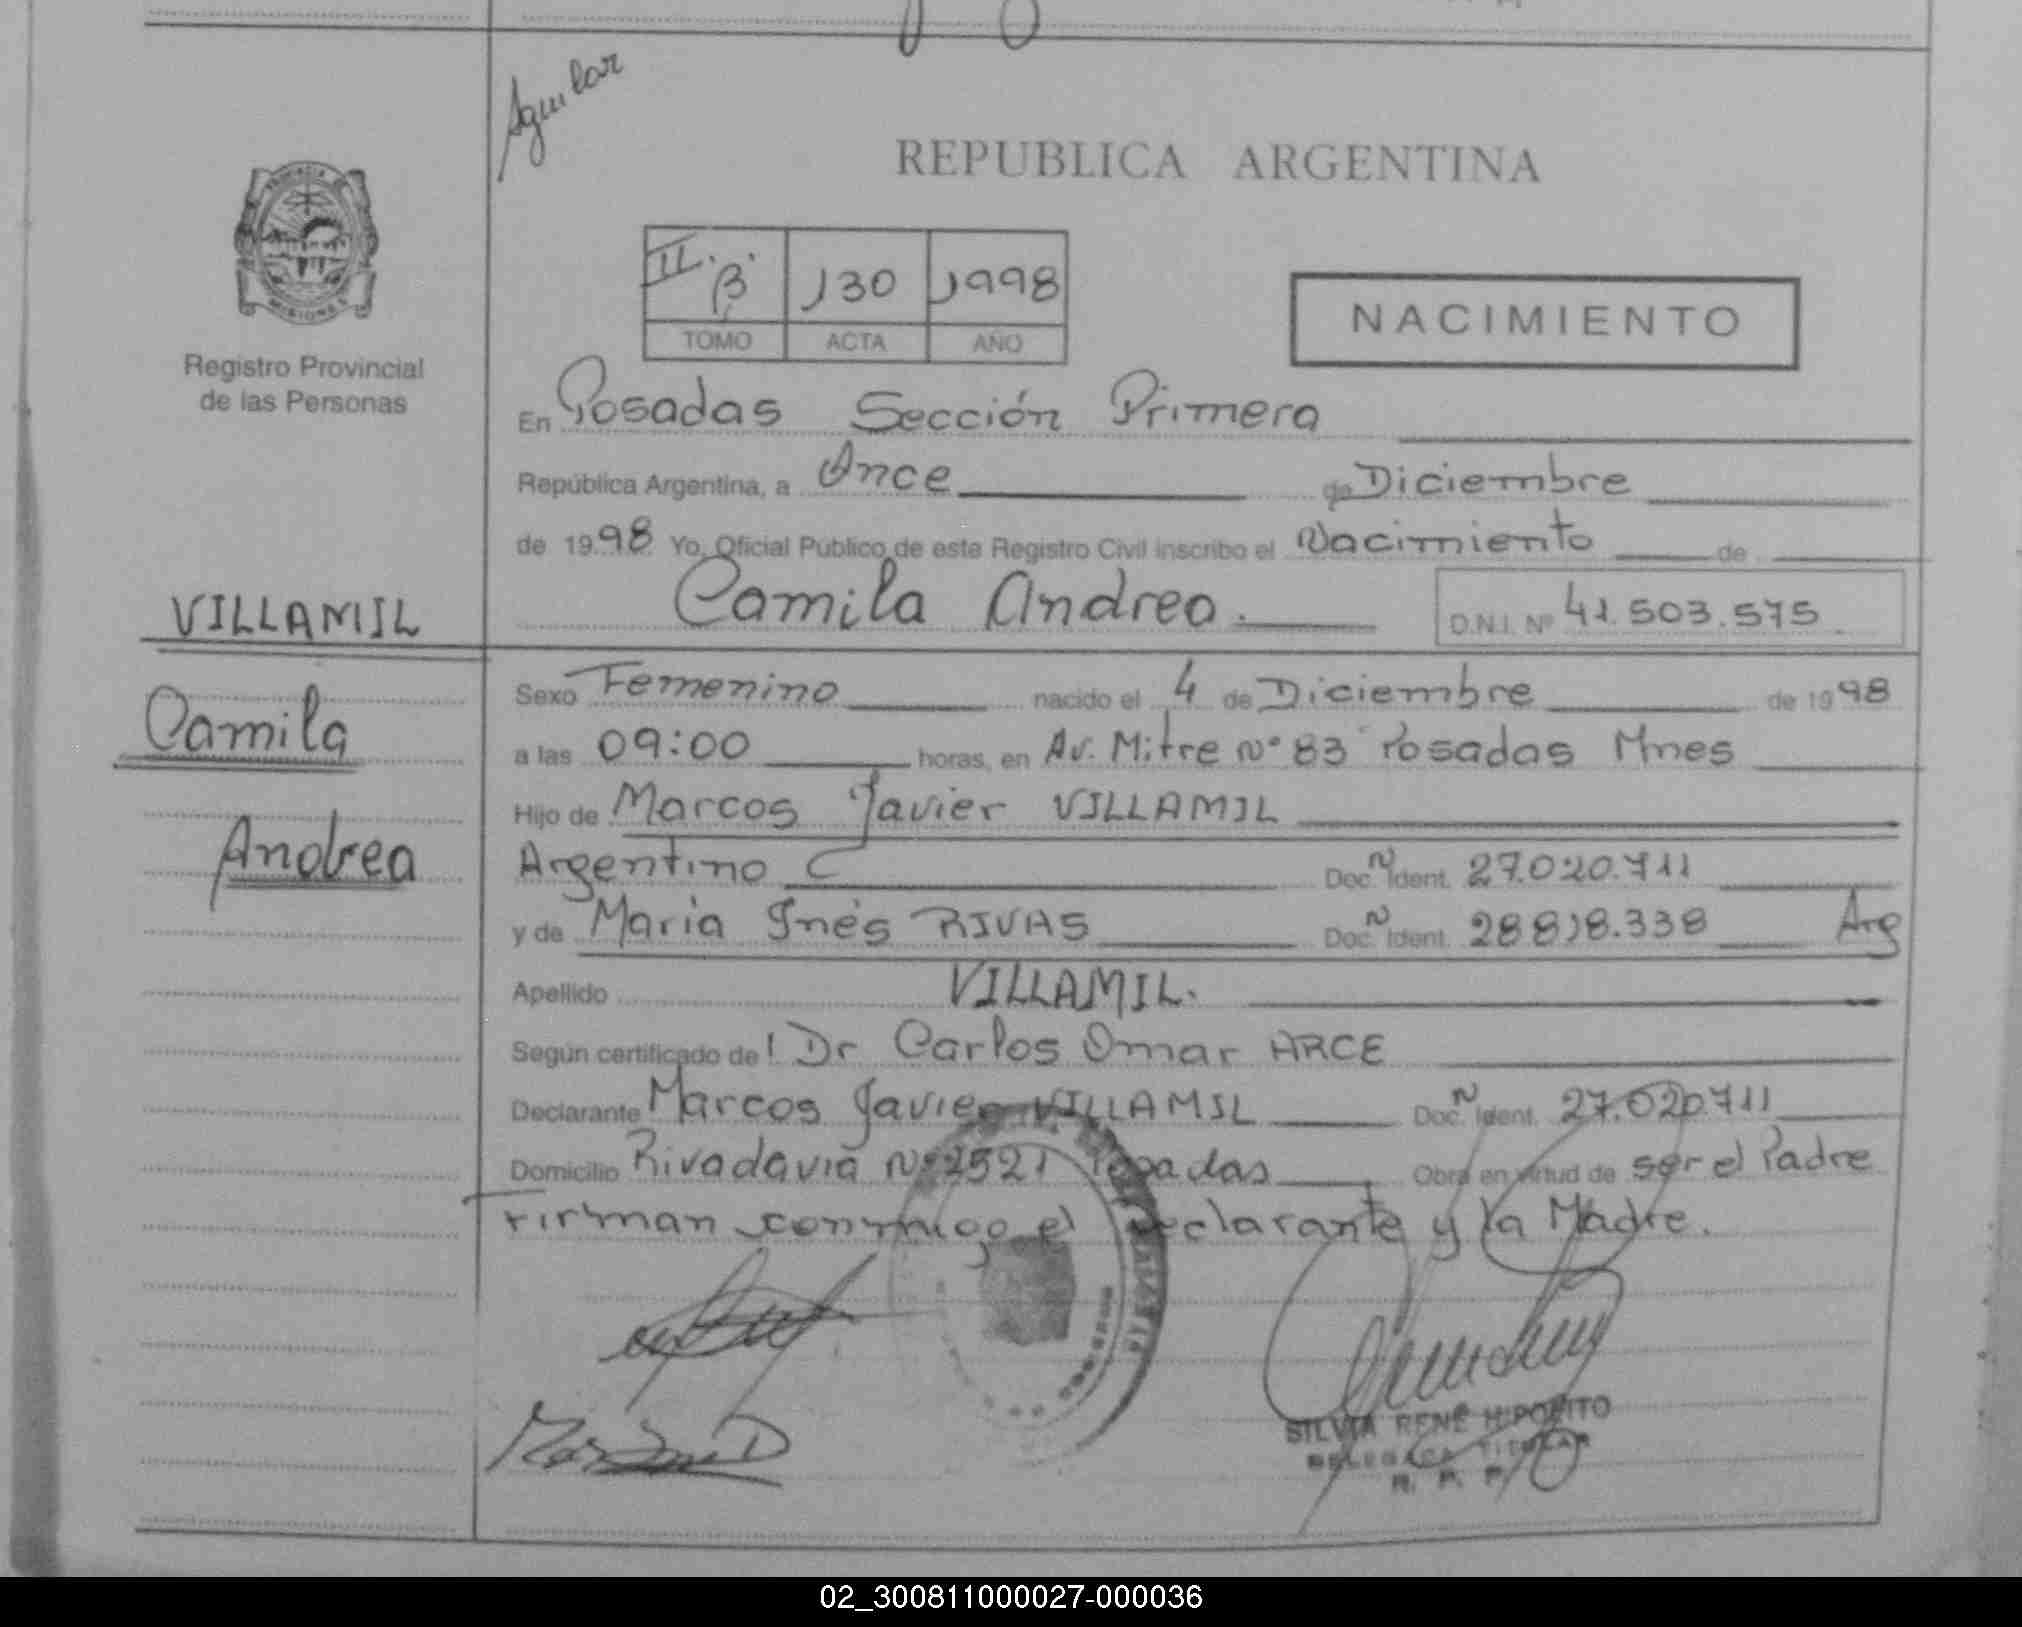 Aguilar
PROVINCIA DE
MISIONES
Registro Provincial
de las Personas
REPUBLICA ARGENTINA
II. B. 130 1998
TOMO ACTA AÑO
NACIMIENTO
En Posadas Sección Primera
República Argentina, a Once de Diciembre
de 1998 Yo, Oficial Público de este Registro Civil inscribo el Nacimiento de
Camila Andrea. D.N.I. Nº 41.503.575
VILLAMIL
Camila
Andrea
Sexo Femenino nacido el 4 de Diciembre de 1998
a las 09:00 horas, en Av. Mitre Nº 83 Posadas Mnes
Hijo de Marcos Javier VILLAMIL
Argentino Doc. N Ident. 27.020.711
y de María Inés RIVAS Doc. N Ident. 28818.338 Arg
Apellido VILLAMIL.
Según certificado de Dr Carlos Omar ARCE
Declarante Marcos Javier VILLAMIL Doc. N Ident. 27.020.711
Domicilio Rivadavia Nº 2521 Posadas Obra en virtud de ser el Padre
Firman conmigo el declarante y la Madre.
SILVIA RENE HIPOLITO
DELEGADA TITULAR
R. P. P.
02_300811000027-000036